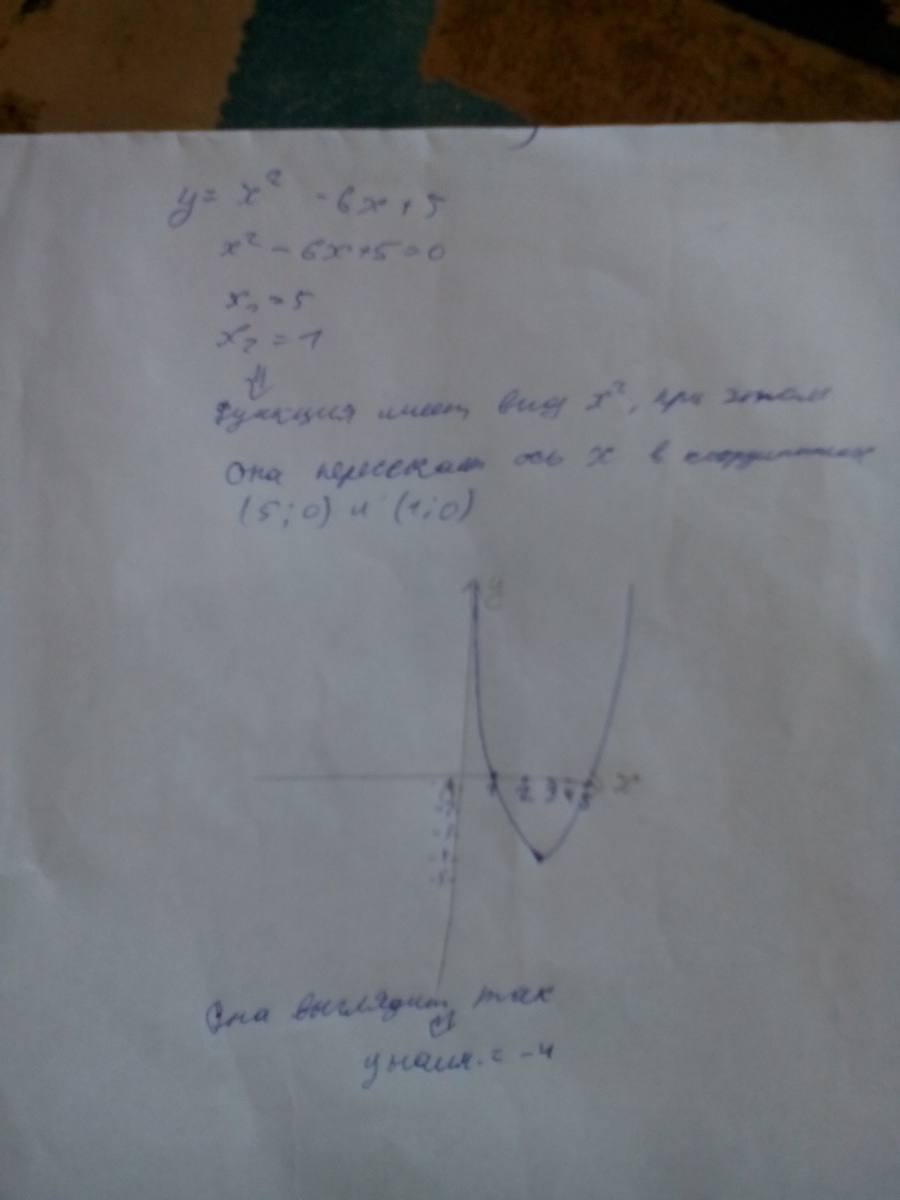 y = x² - 6x + 5
x² - 6x + 5 = 0
x₁ = 5
x₂ = 1
⇓
Функция имеет вид x², при этом
Она пересекает ось x в координатах
(5; 0) и (1; 0)
y
1 2 3 4 5 x
Она выглядит так
⇓
y наим. = -4